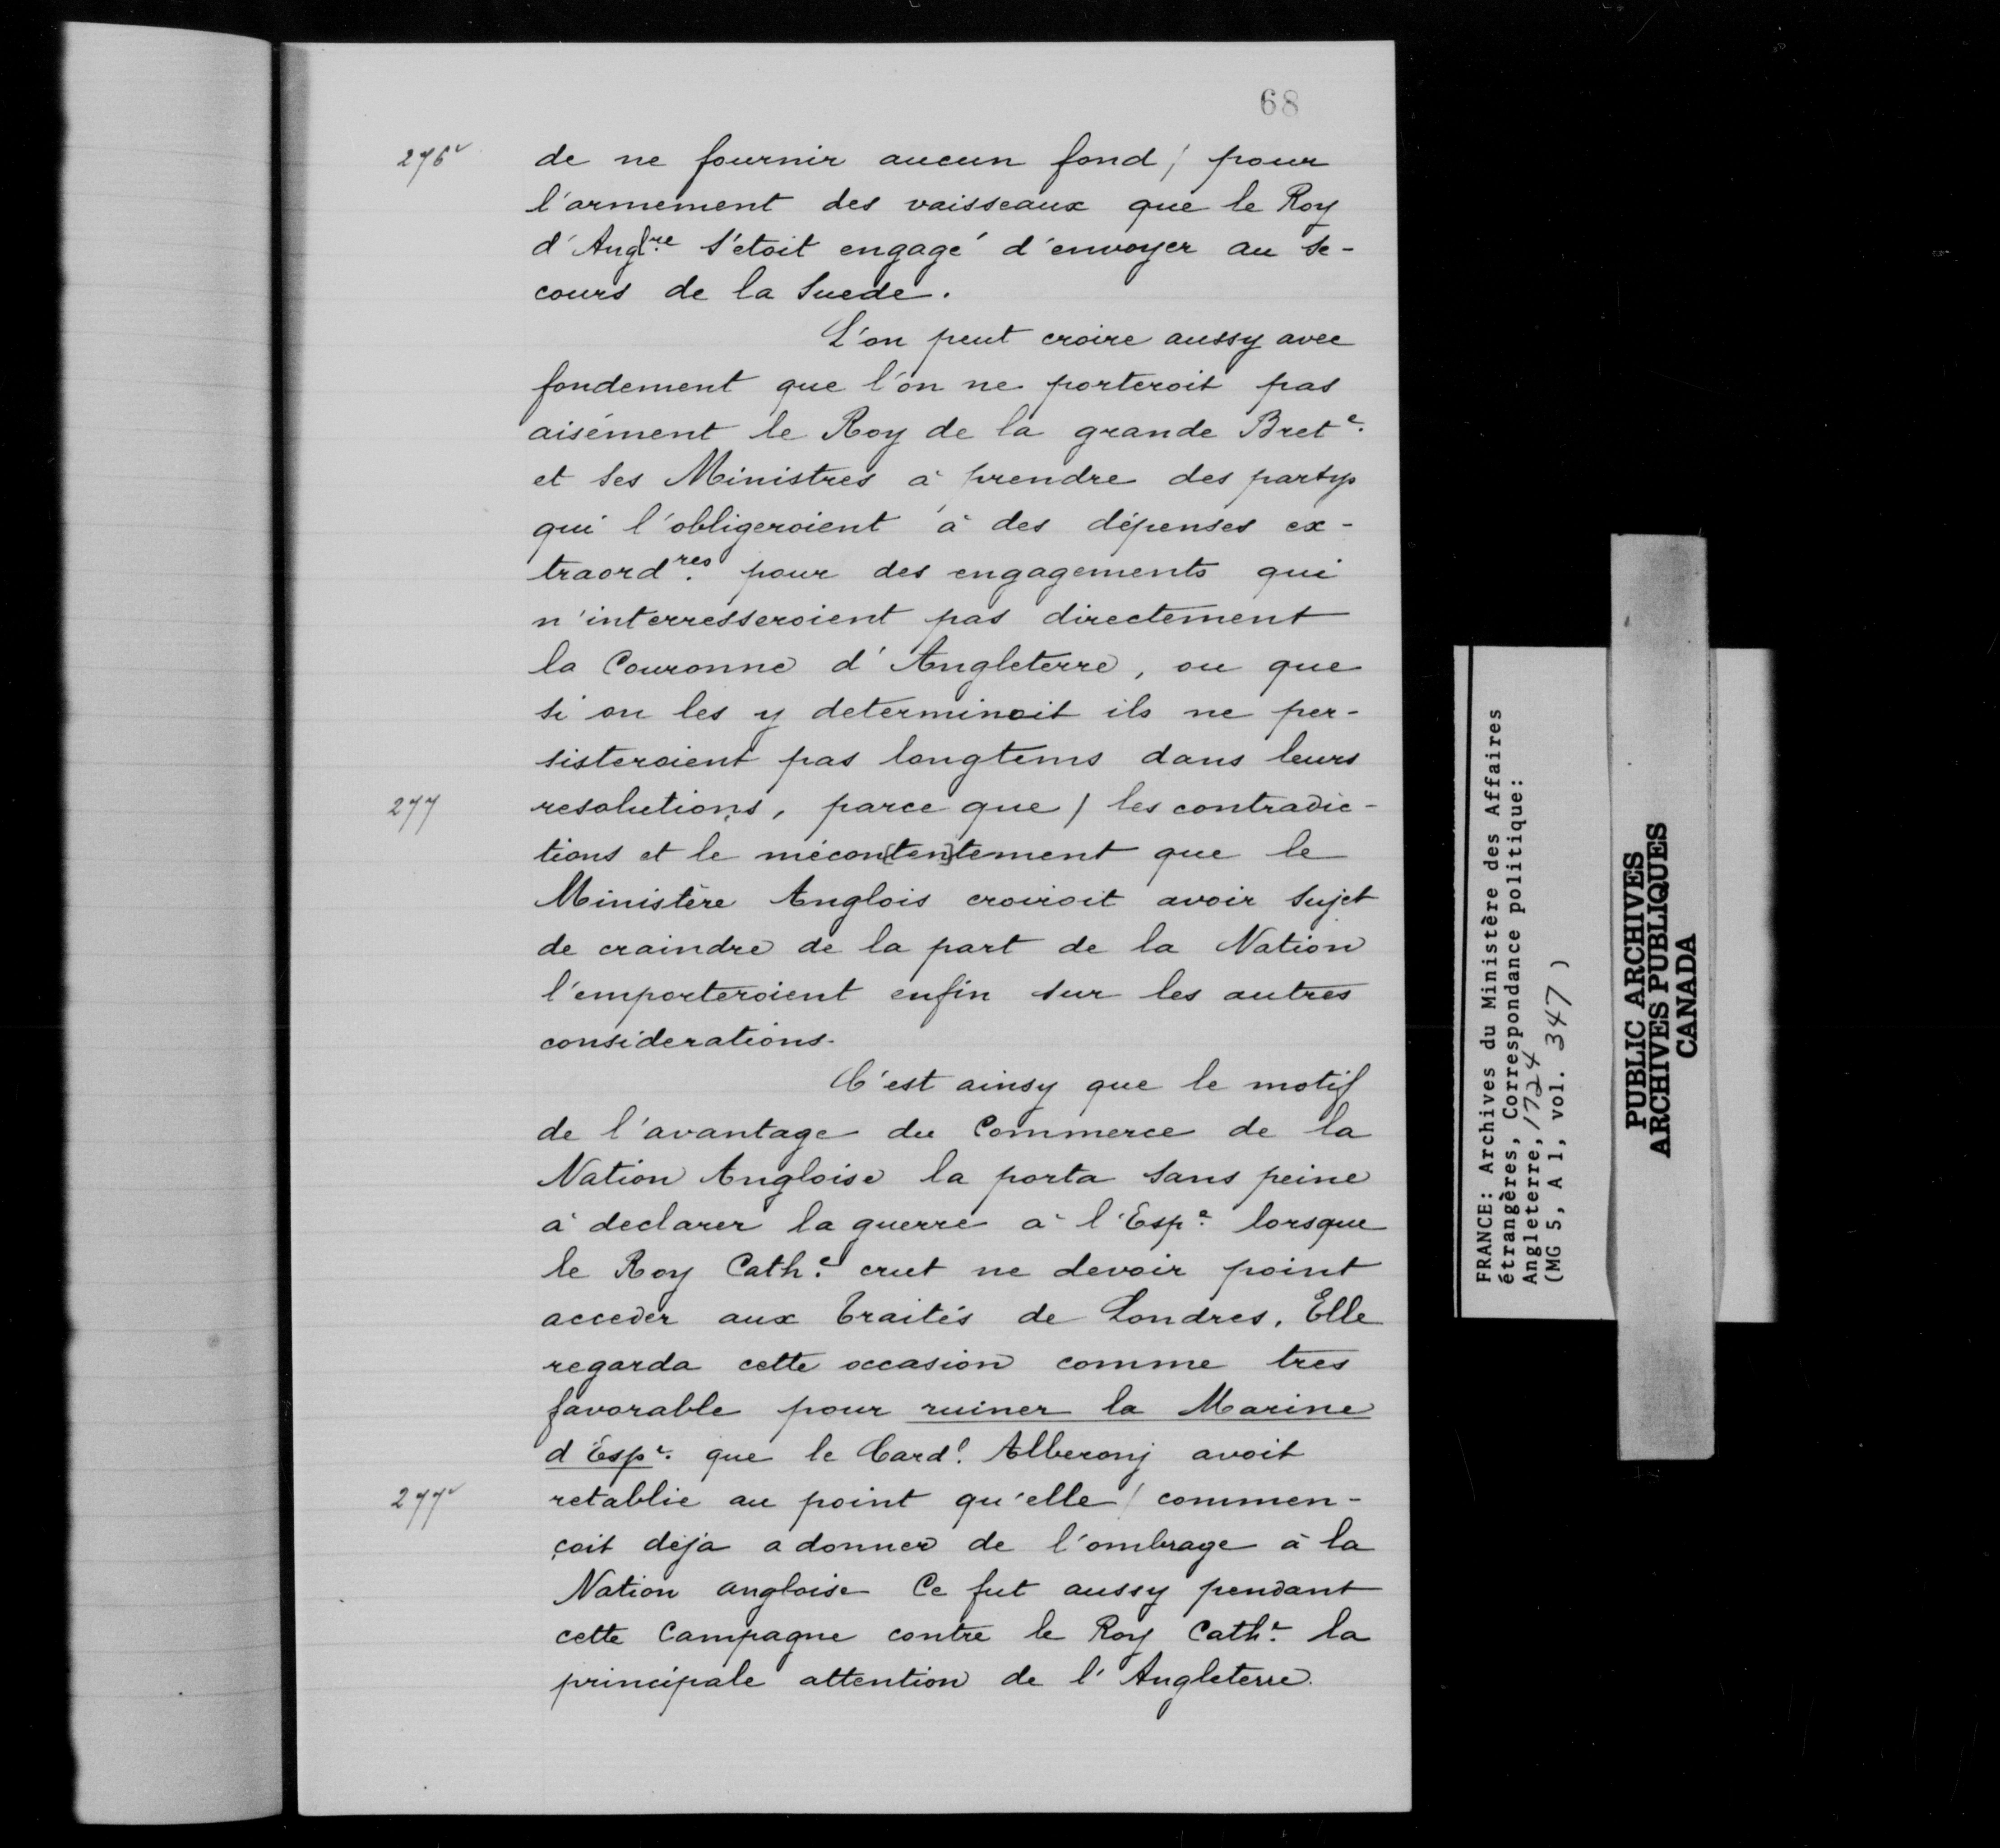 68
276v de ne fournir aucun fond / pour
l'armement des vaisseaux que le Roy
d'Anglre s'etoit engagé d'envoyer au se-
cours de la Suede.
L'on peut croire aussy avec
fondement que l'on ne porteroit pas
aisément le Roy de la grande Brete.
et ses Ministres à prendre des partys
qui l'obligeroient à des dépenses ex-
traordres. pour des engagements qui
n'interresseroient pas directement
la Couronne d'Angleterre, ou que
si on les y determinoit ils ne per-
sisteroient pas longtems dans leurs
277 resolutions, parce que / les contradic-
tions et le mécon[ten]tement que le
Ministère Anglois croiroit avoir sujet
de craindre de la part de la Nation
l'emporteroient enfin sur les autres
considerations.
C'est ainsy que le motif
de l'avantage du Commerce de la
Nation Angloise la porta sans peine
à declarer la guerre à l'Espe. lorsque
le Roy Cathe. crut ne devoir point
acceder aux Traités de Londres. Elle
regarda cette occasion comme tres
favorable pour ruiner la Marine
d'Espe. que le Cardl. Alberonj avoit
277v retablie au point qu'elle / commen-
çoit déja a donner de l'ombrage à la
Nation angloise Ce fut aussy pendant
cette Campagne contre le Roy Cathe. la
principale attention de l'Angleterre.
FRANCE: Archives du Ministère des Affaires
étrangères, Correspondance politique:
Angleterre, 1724
(MG 5, A 1, vol. 347 )
PUBLIC ARCHIVES
ARCHIVES PUBLIQUES
CANADA